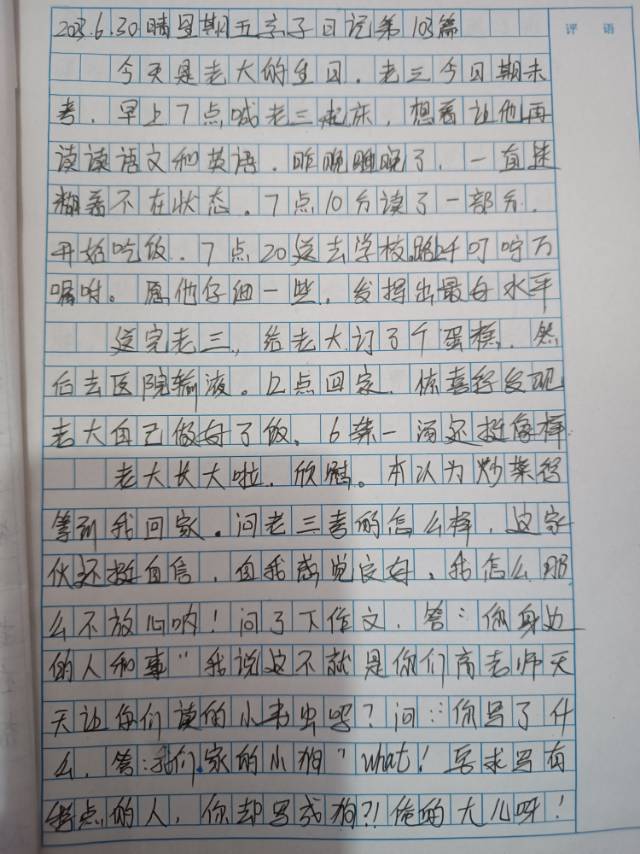 评 语
2023.6.30晴星期五亲子日记第103篇
今天是老大的生日.老三今日期末
考.早上7点喊老三起床,想着让他再
读读语文和英语.昨晚睡晚了.一直迷
糊着不在状态。7点10分读了一部分.
开始吃饭.7点20送去学校.路上千叮咛万
嘱咐。愿他仔细一些,发挥出最好水平
送完老三,给老大订了个蛋糕.然
后去医院输液。12点回家.惊喜得发现
老大自己做好了饭.6菜一汤还挺像样
老大长大啦.欣慰。本以为炒菜得
等到我回家.问老三考的怎么样.这家
伙还挺自信,自我感觉良好.我怎么那
么不放心呐!问了下作文.答:"你身边
的人和事"我说这不就是你们商老师天
天让你们读的小书虫吗?问:"你写了什
么.答:我们家的小狗"what!要求写有
特点的人,你却写成狗?!俺的大儿呀!